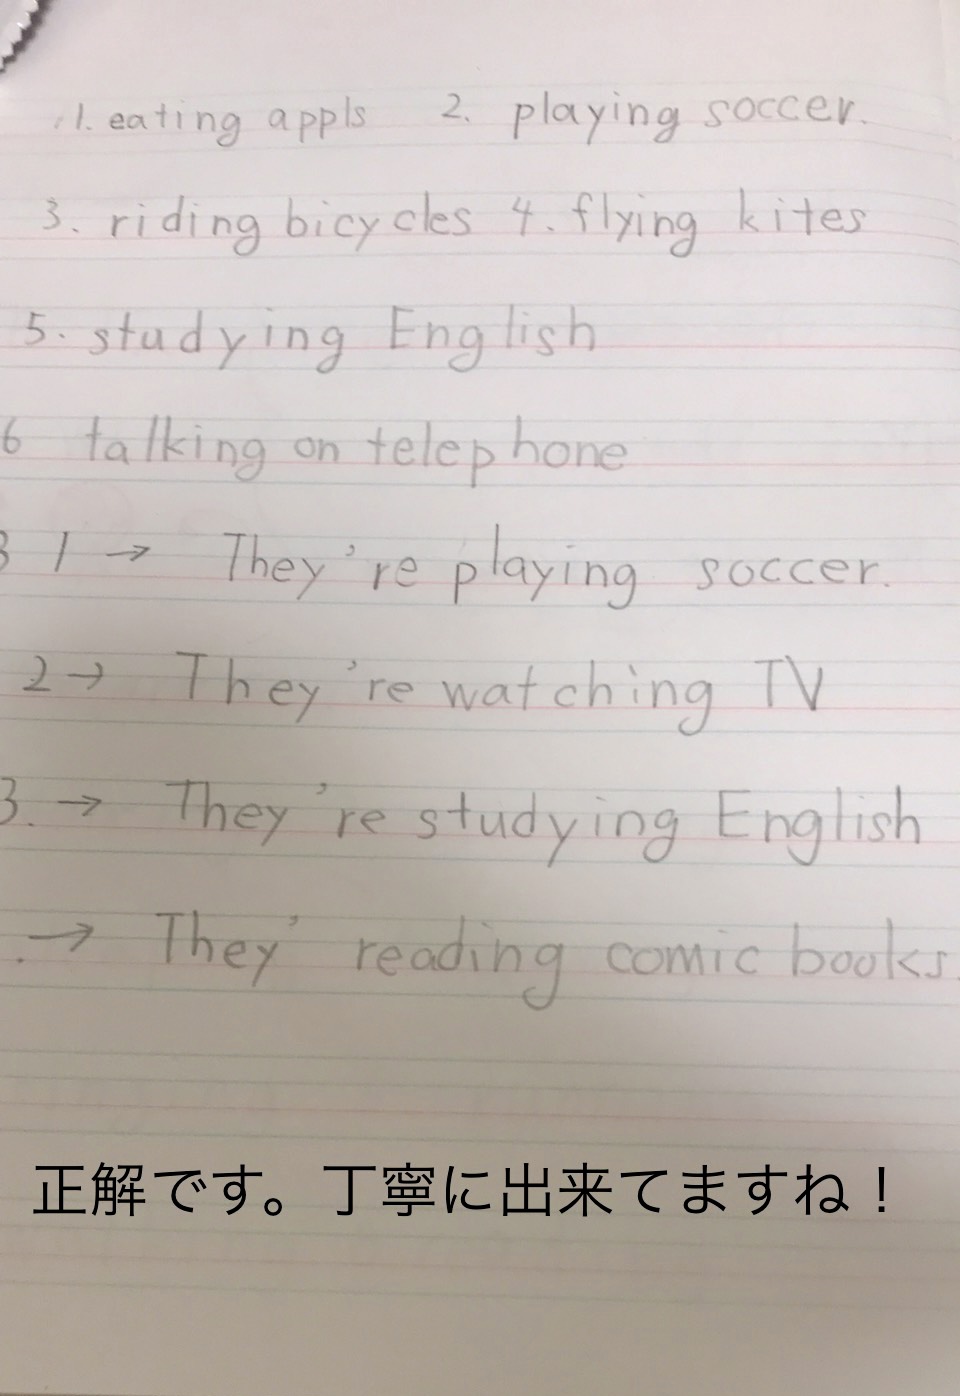 1. eating appls 2. playing soccer.
3. riding bicycles 4. flying kites
5. studying English
6 talking on telephone
3 1 → They're playing soccer.
2 → They're watching TV
3. → They're studying English
. → They' reading comic books.
正解です。丁寧に出来てますね！